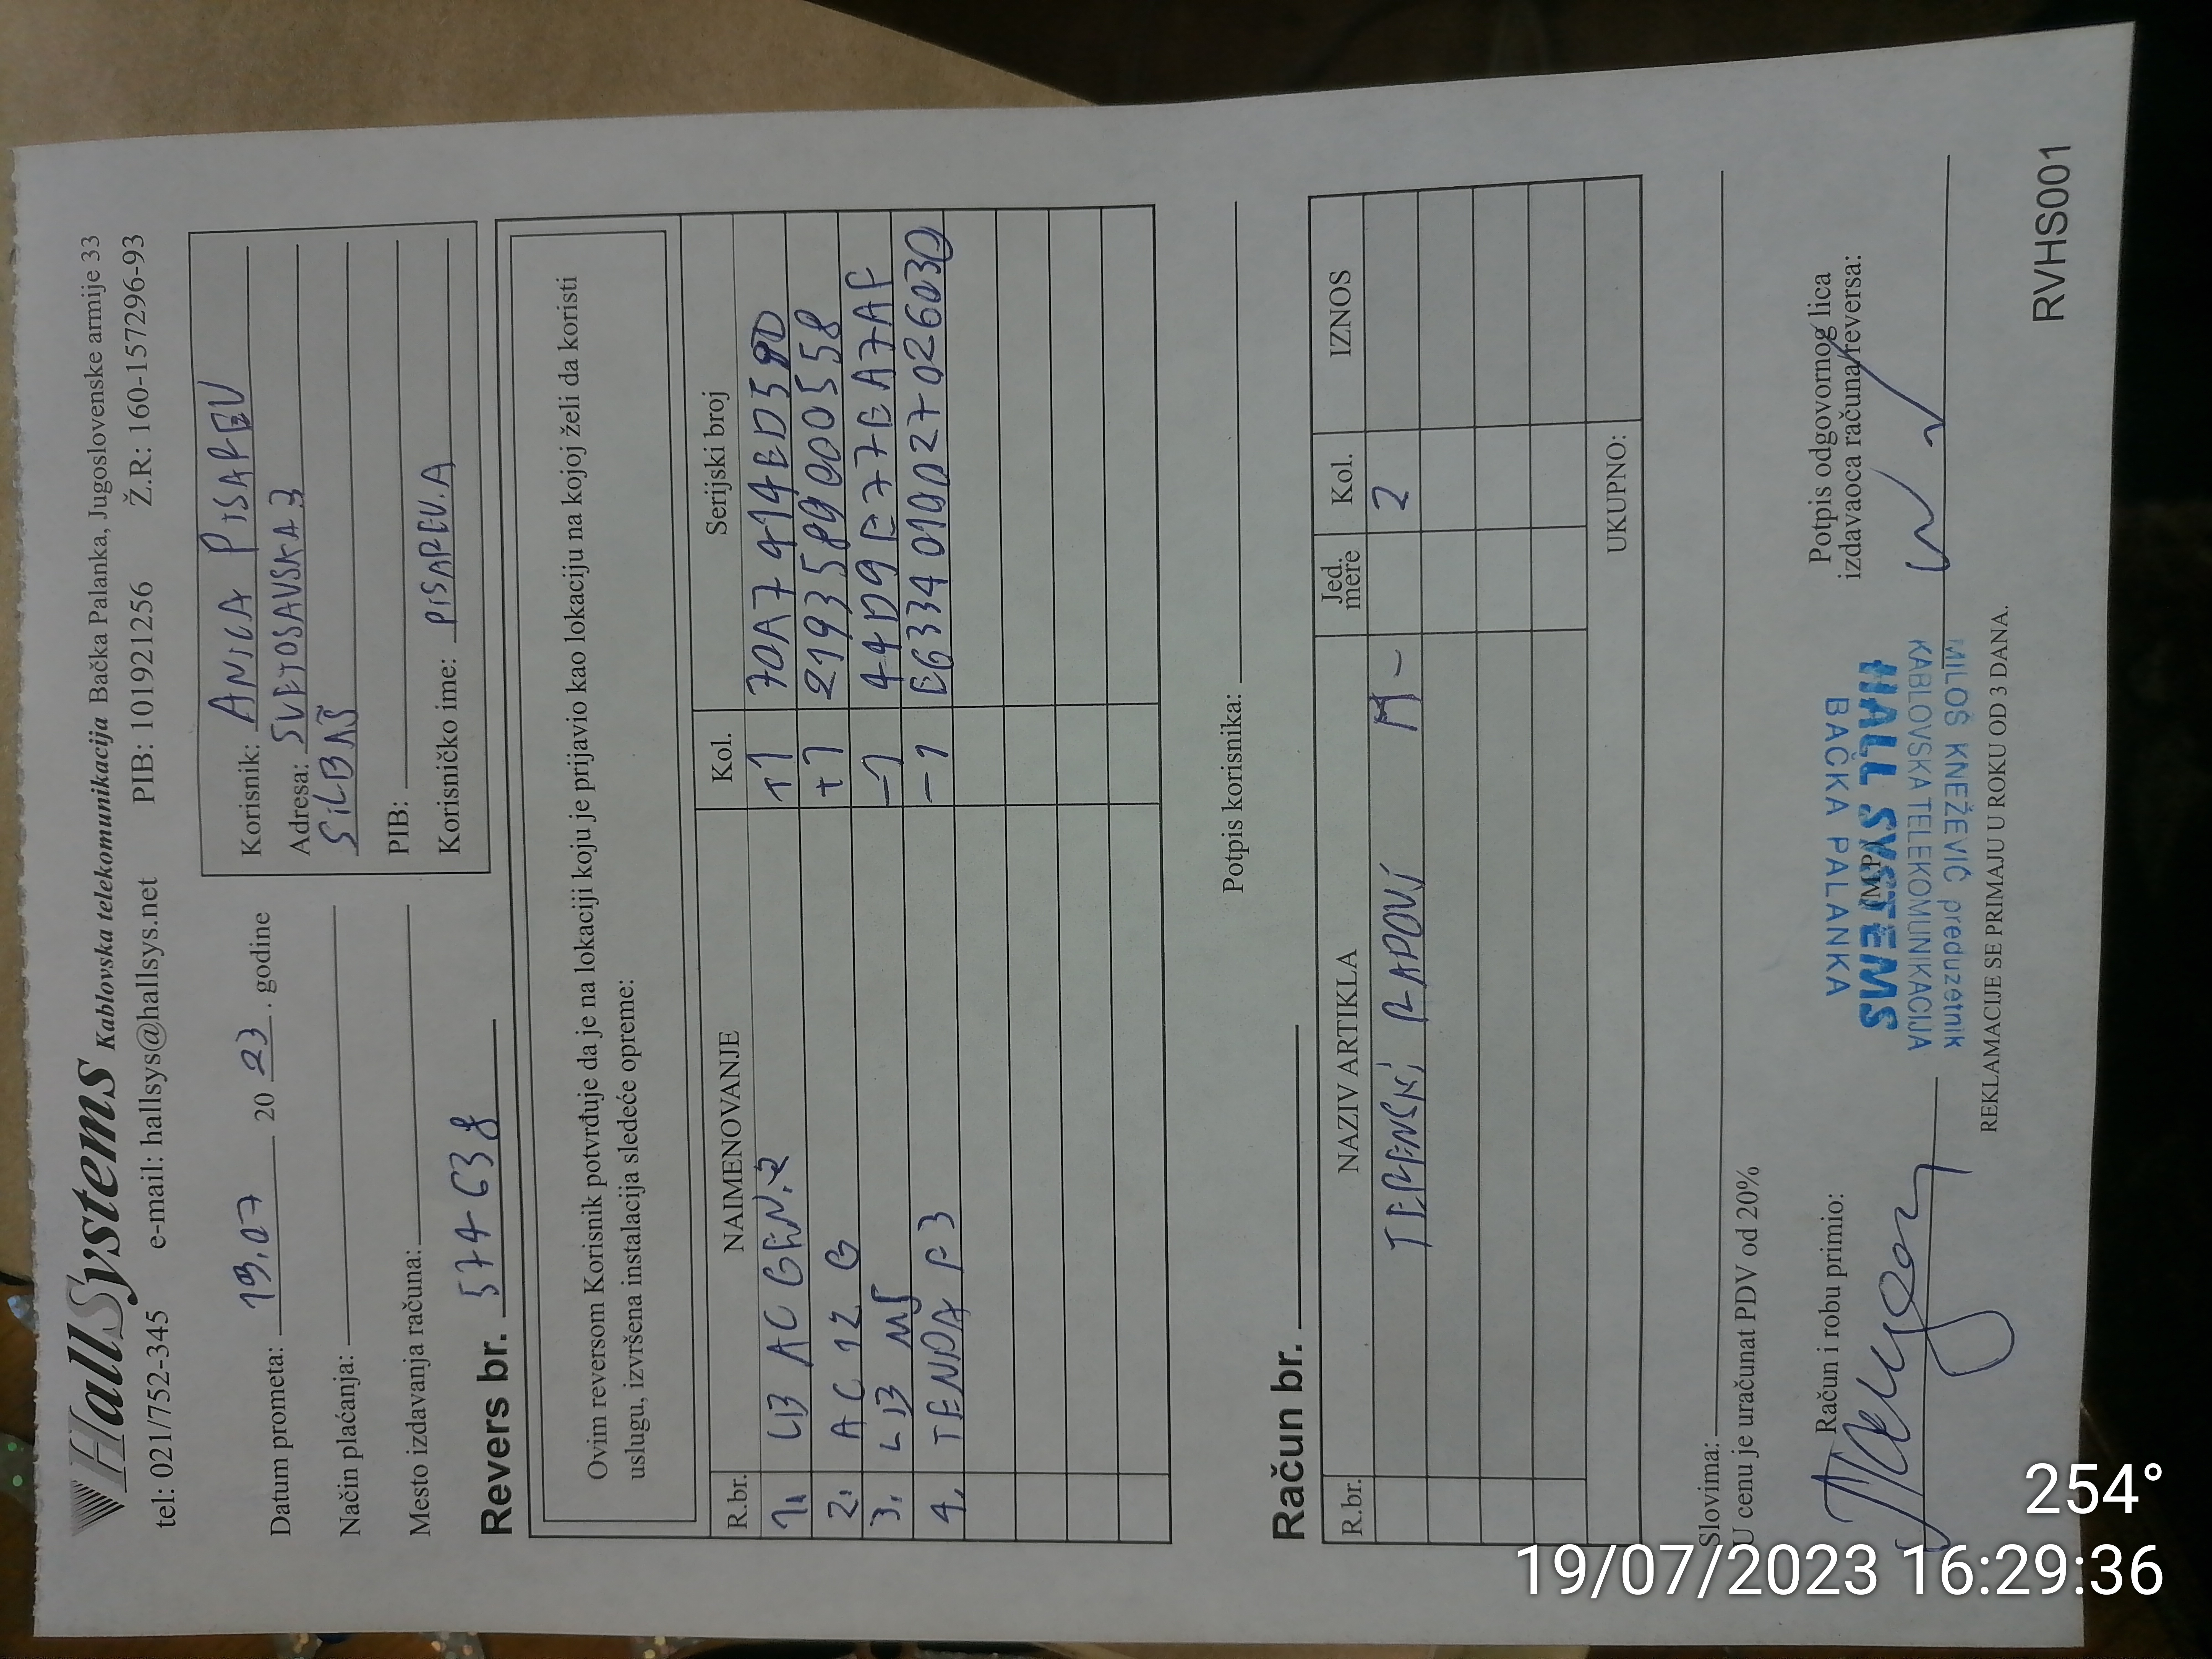 HallSystems Kablovska telekomunikacija Bačka Palanka, Jugoslovenske armije 33
tel: 021/752-345 e-mail: hallsys@hallsys.net PIB: 101921256 Ž.R: 160-1572296-93
Datum prometa: 19.07 20 23. godine
Način plaćanja:
Mesto izdavanja računa:
Korisnik: ANICA PISAREV
Adresa: SVETOSAVSKA 3
SILBAŠ
PIB:
Korisničko ime: PISAREV.A
Revers br. 574-638
Ovim reversom Korisnik potvrđuje da je na lokaciji koju je prijavio kao lokaciju na kojoj želi da koristi
uslugu, izvršena instalacija sledeće opreme:
R.br. NAIMENOVANJE Kol. Serijski broj
1. LB AC GEN.2 +1 70A7414ED590
2. AC 12 G +1 2193589000558
3. LB M5 -1 44D9E77EA7AF
4. TENDA F3 -1 E6334010027026030
Potpis korisnika:
Račun br.
R.br. NAZIV ARTIKLA Jed. mere Kol. IZNOS
TERENSKI RADOVI 2
UKUPNO:
Slovima:
U cenu je uračunat PDV od 20%
Račun i robu primio:
(M.P.)
Potpis odgovornog lica
izdavaoca računa/reversa:
BAČKA PALANKA
HALL SYSTEMS
KABLOVSKA TELEKOMUNIKACIJA
MILOŠ KNEŽEVIĆ preduzetnik
REKLAMACIJE SE PRIMAJU U ROKU OD 3 DANA.
RVHS001
254°
19/07/2023 16:29:36